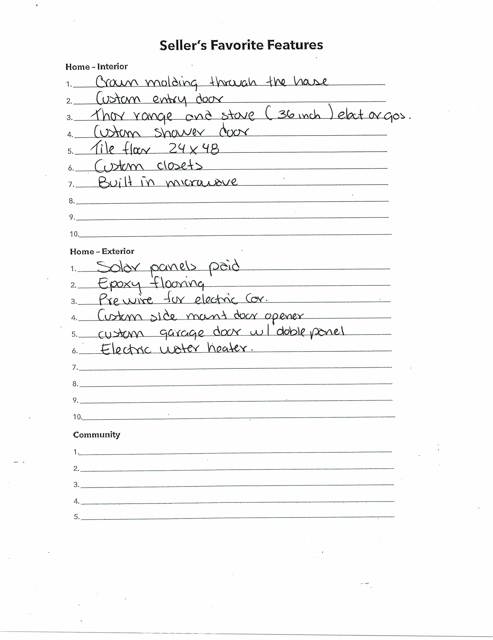 Seller's Favorite Features
Home – Interior
1. Crown molding through the hase
2. Custom entry door
3. Thor range and stove (36 inch) elect or gas.
4. Custom shower door
5. Tile floor 24x48
6. Custom closets
7. Built in microwave
8.
9.
10.
Home – Exterior
1. Solar panels paid
2. Epoxy flooring
3. Prewire for electric Car.
4. Custom side mant door opener
5. custom garage door w/ doble panel
6. Electric water heater.
7.
8.
9.
10.
Community
1.
2.
3.
4.
5.